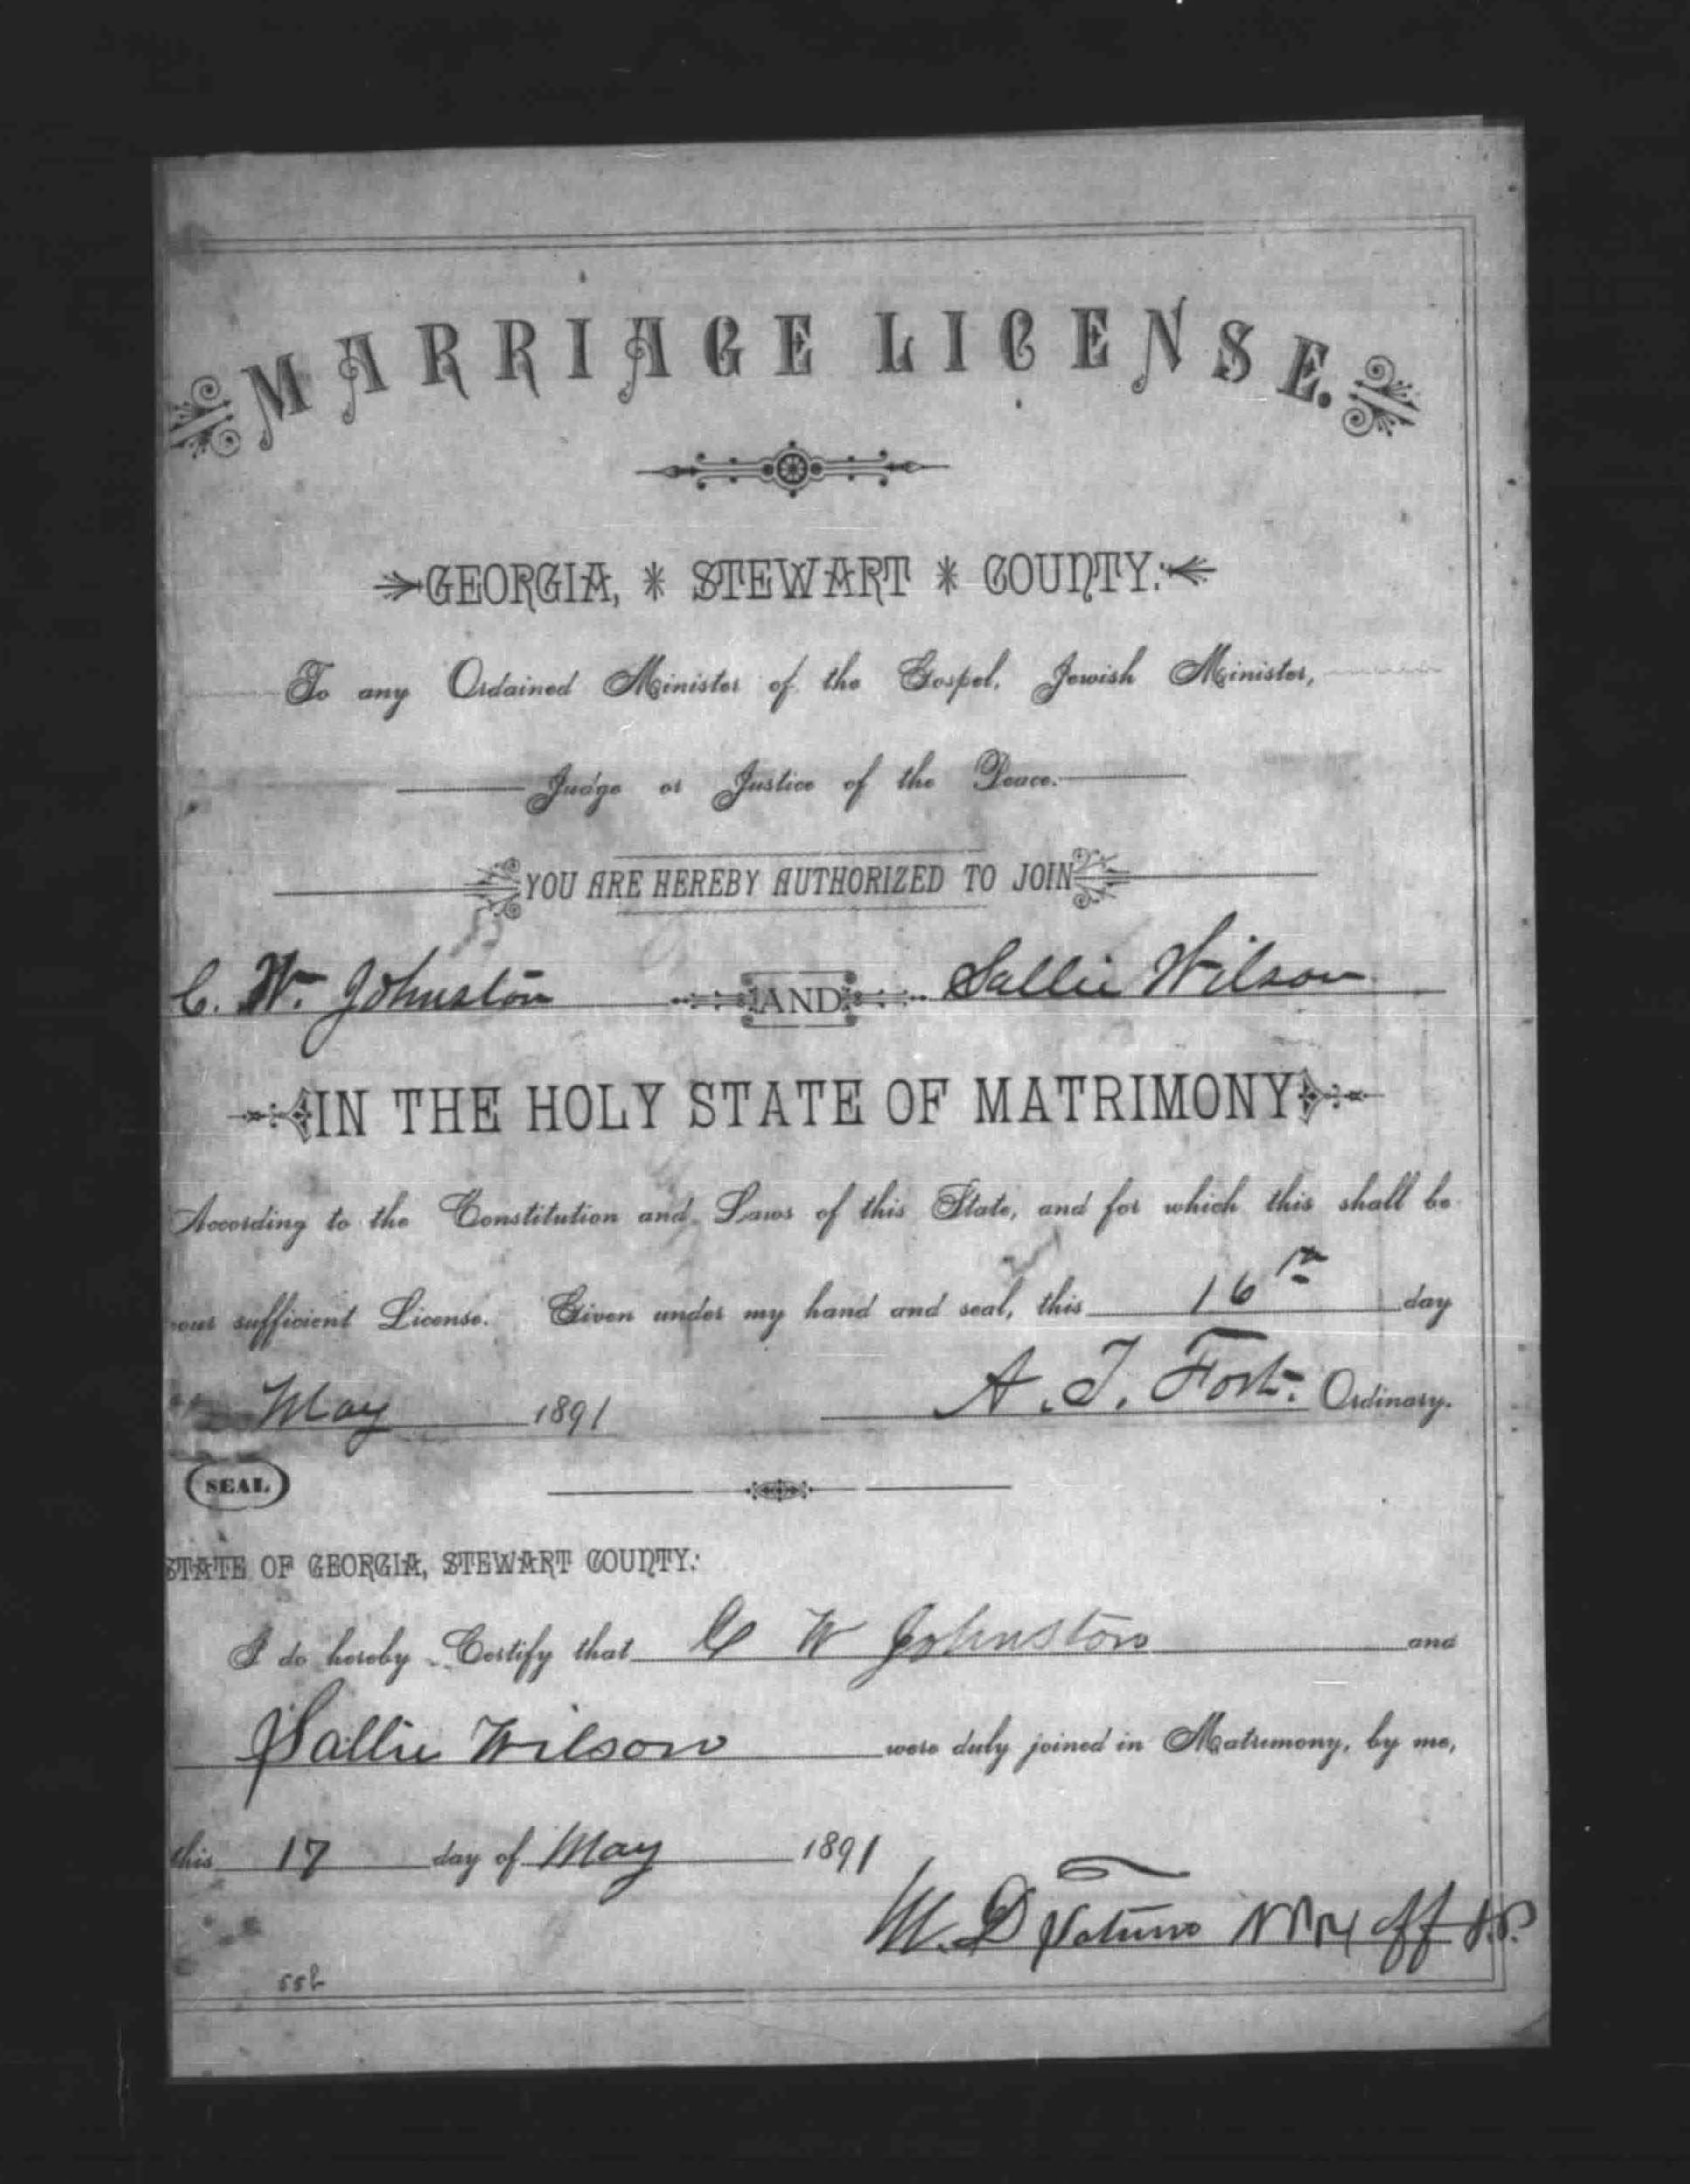 MARRIAGE LICENSE.
GEORGIA, * STEWART * COUNTY:
To any Ordained Minister of the Gospel, Jewish Minister,
Judge or Justice of the Peace.
YOU ARE HEREBY AUTHORIZED TO JOIN
C. W. Johnston AND Sallie Wilson
IN THE HOLY STATE OF MATRIMONY
According to the Constitution and Laws of this State, and for which this shall be
your sufficient License. Given under my hand and seal, this 16th day
May 1891 A. T. Fort. Ordinary.
SEAL
STATE OF GEORGIA, STEWART COUNTY:
I do hereby Certify that C W Johnston and
Sallie Wilson were duly joined in Matrimony, by me,
this 17 day of May 1891
M. D